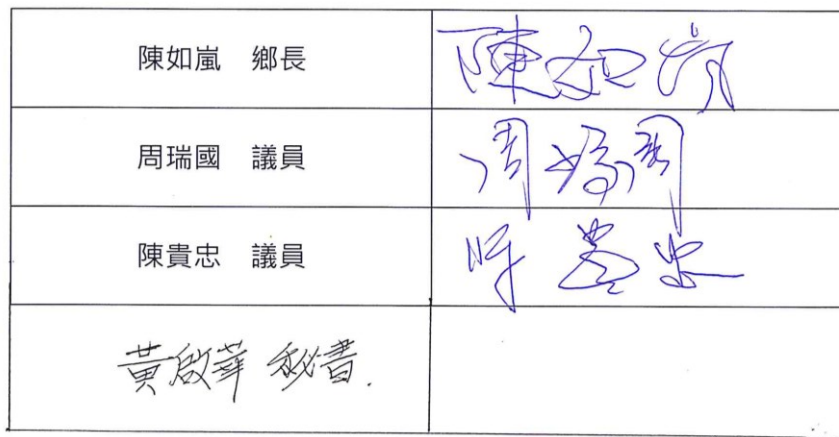 陳如嵐 鄉長 陳如嵐
周瑞國 議員 周瑞國
陳貴忠 議員 陳貴忠
黃啟華 秘書.